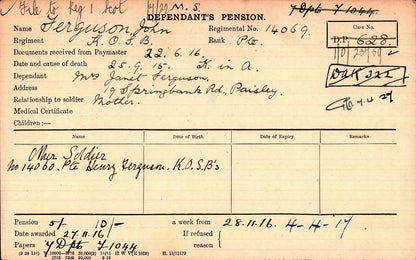 File to Reg 1 Scot 4/29 M.S.
DEPENDANT'S PENSION.
7 Dpt F 1044
Name Ferguson John Regimental No. 14069.
Case No.
Regiment K.O.S.B. Rank Pte.
D.P. 628
Documents received from Paymaster 22.6.16.
Date and cause of death 25.9.15. K in A.
Dependant Mrs Janet Ferguson,
Address 19 Springbank Rd, Paisley.
7.4.27
Relationship to soldier Mother.
Medical Certificate
Children:—
Name Date of Birth Date of Expiry Remarks
Other Soldier
No 14060. Pte Henry Ferguson. K.O.S.B's
Pension 5/- 10/- a week from 28.11.16. 4-4-'17
Date awarded 27.11.16 If refused
Papers 7 Dpt F 1044 reason